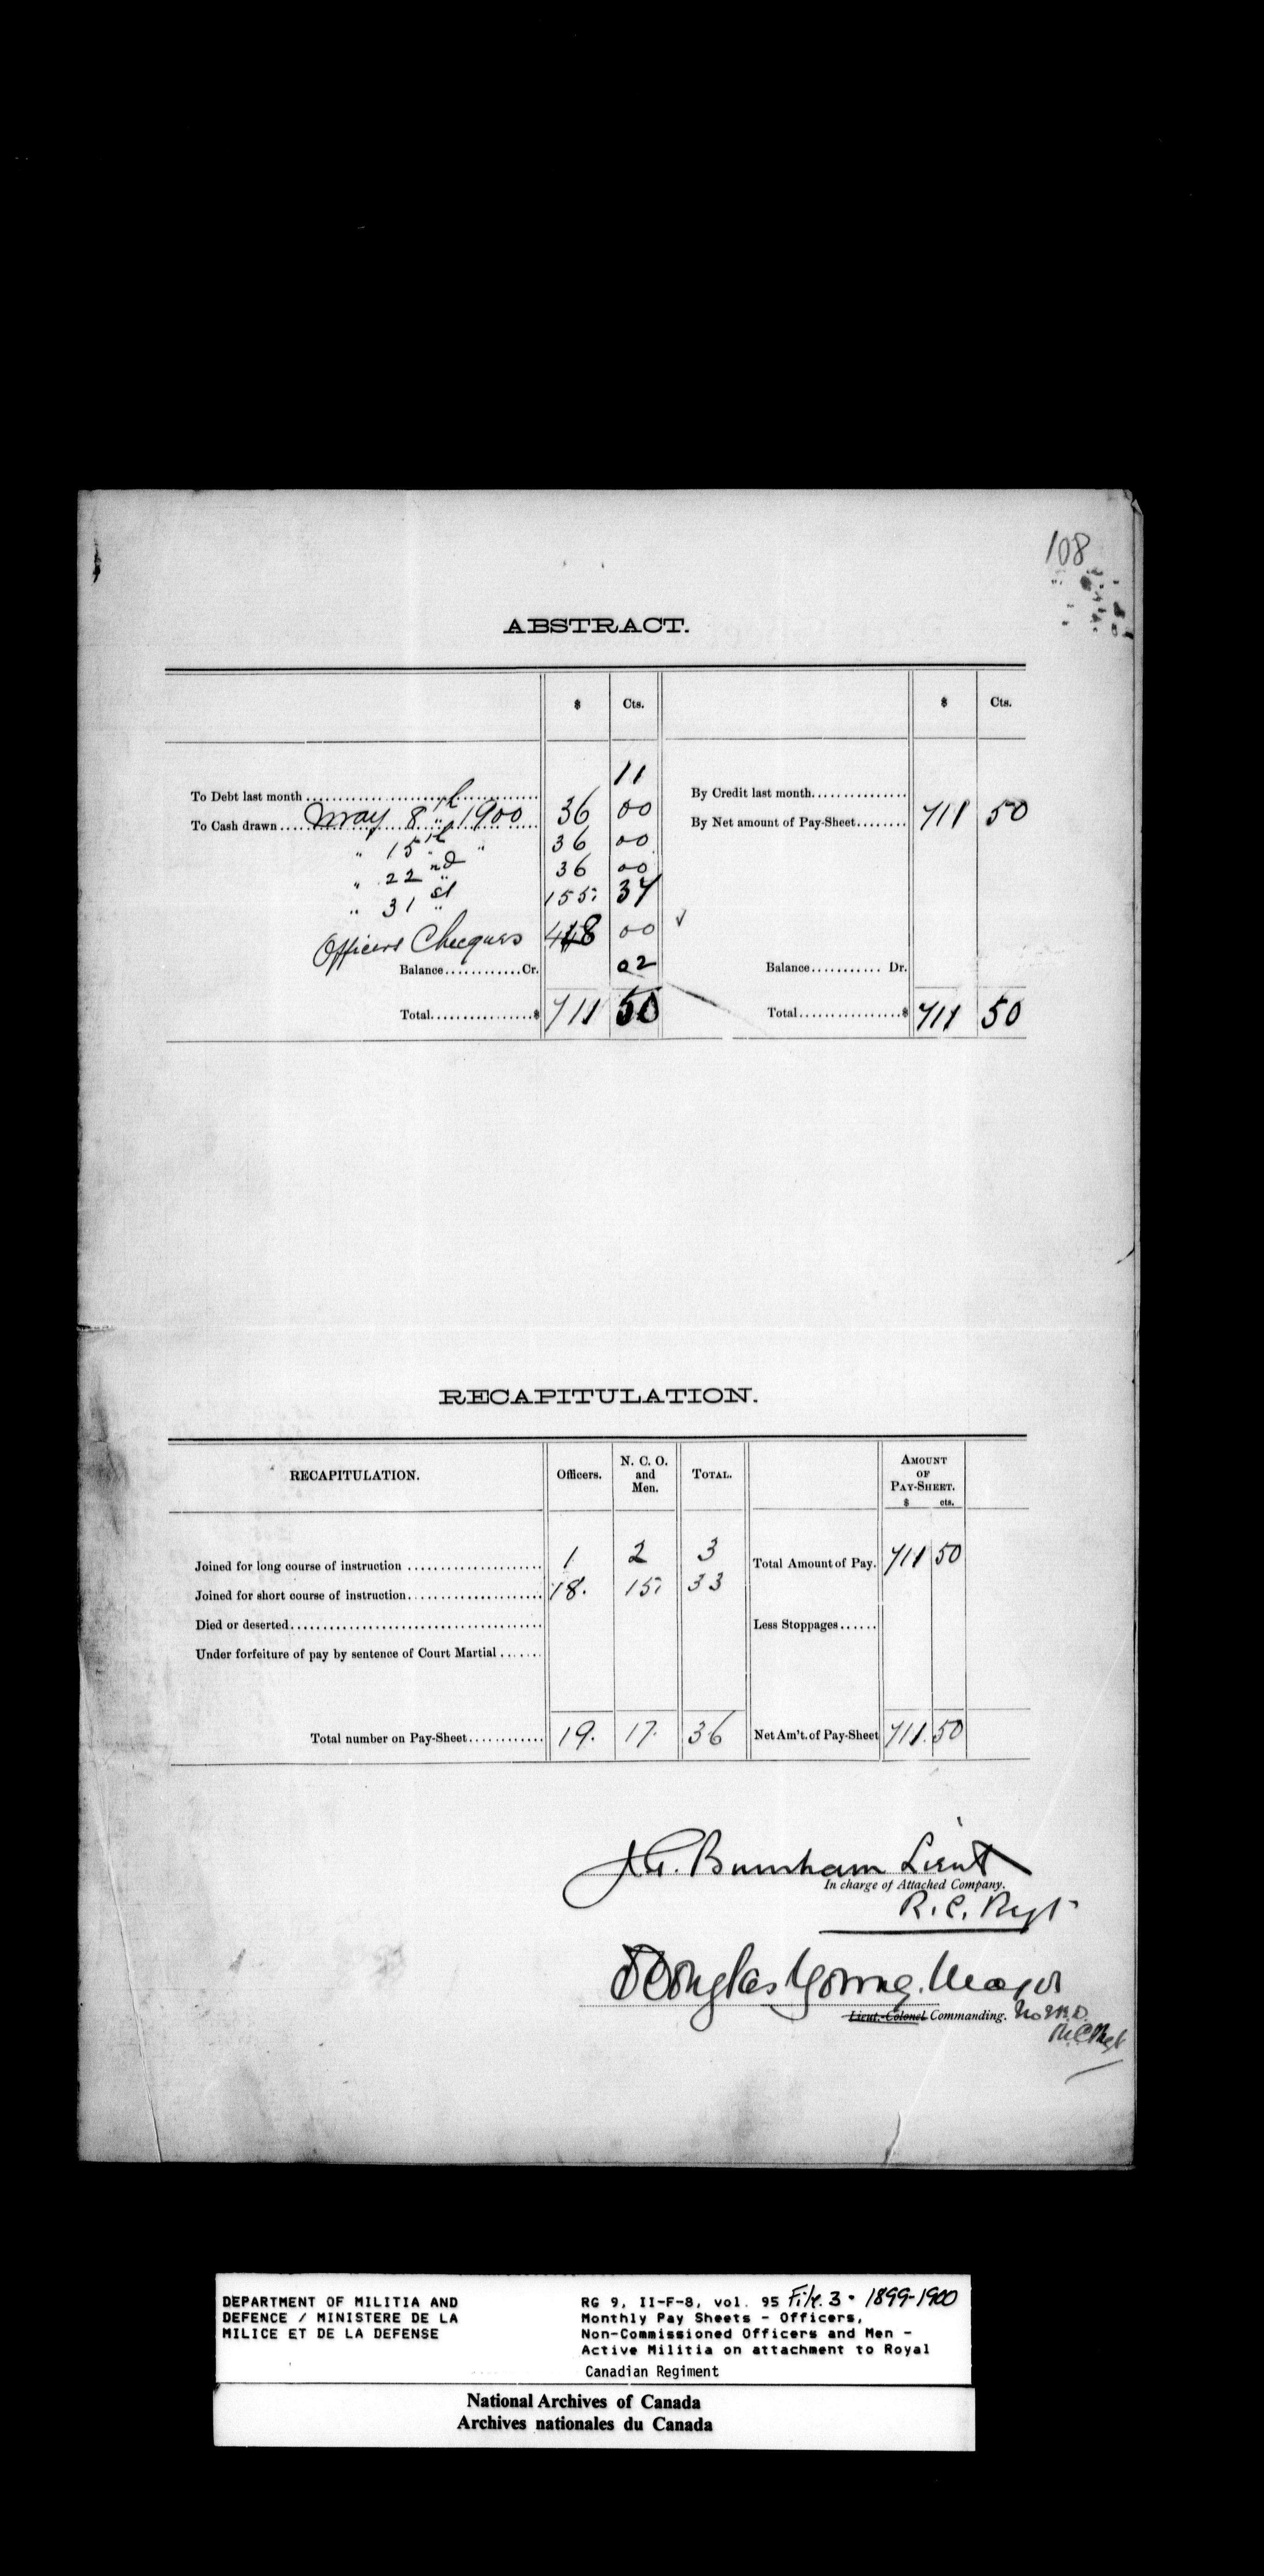 108
ABSTRACT.
$ Cts. $ Cts.
To Debt last month 11 By Credit last month
To Cash drawn May 8th 1900 36 00 By Net amount of Pay-Sheet 711 50
" 15th " 36 00
" 22nd " 36 00
" 31st " 155 37
Officers Cheques 448 00
Balance Cr. 02 Balance Dr.
Total $ 711 50 Total $ 711 50
RECAPITULATION.
RECAPITULATION. Officers. N. C. O. and Men. TOTAL. AMOUNT OF PAY-SHEET. $ cts.
Joined for long course of instruction 1 2 3 Total Amount of Pay. 711 50
Joined for short course of instruction 18. 15 33
Died or deserted Less Stoppages
Under forfeiture of pay by sentence of Court Martial
Total number on Pay-Sheet 19. 17. 36 Net Am't. of Pay-Sheet 711. 50
Burnham Lieut
In charge of Attached Company.
R. C. Regt
Douglas Young. Major
Lieut.-Colonel Commanding.
R.C. Regt
DEPARTMENT OF MILITIA AND
DEFENCE / MINISTERE DE LA
MILICE ET DE LA DEFENSE
RG 9, II-F-8, vol. 95 File. 3 · 1899-1900
Monthly Pay Sheets - Officers,
Non-Commissioned Officers and Men -
Active Militia on attachment to Royal
Canadian Regiment
National Archives of Canada
Archives nationales du Canada